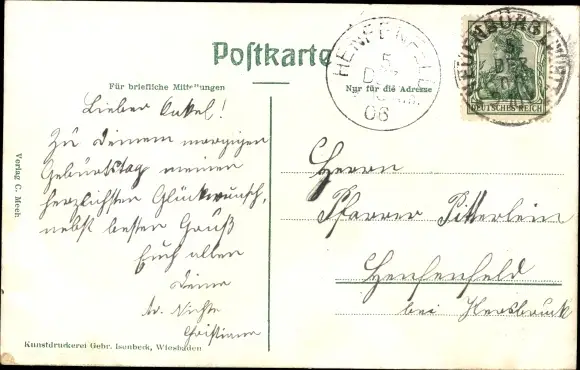 Postkarte
Für briefliche Mitteilungen
Nur für die Adresse
HENFENFELD
5
DEZ
06
5
DEZ
06
DEUTSCHES REICH
Lieber Onkel!
Zu Deinem morgigen
Geburtstag meinen
herzlichsten Glückwunsch,
nebst besten Gruß
Euch allen
Deine
tr. Nichte
Christiane
Herrn
Pfarrer Pitterlein
Henfenfeld
bei Hersbruck
Verlag C. Meeh
Kunstdruckerei Gebr. Isenbeck, Wiesbaden